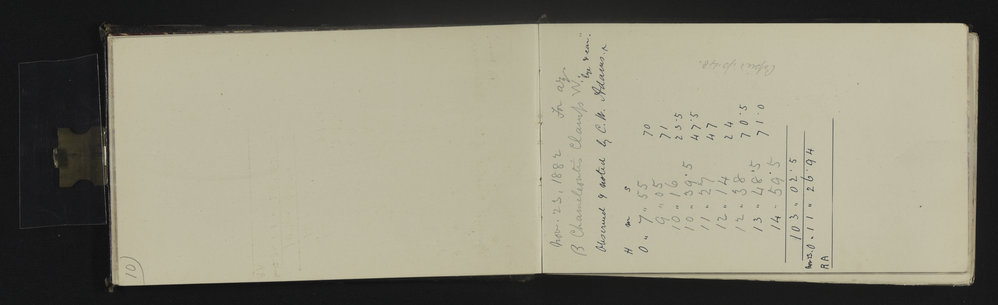 10)
Nov. 23, 1882 For az.
B Chameleontis Clamp W.
"by eye & ear."
Observed & noted by C. W. Adams.
H m s
0 " 7 " 55 70
9 " 05 71
10 " 16 23.5
10 " 39.5 47.5
11 " 27 47
12 " 14 24
12 " 38 70.5
13 " 48.5 71.0
14 " 59.5
103 " 02.5
0 " 11 " 26.94
RA